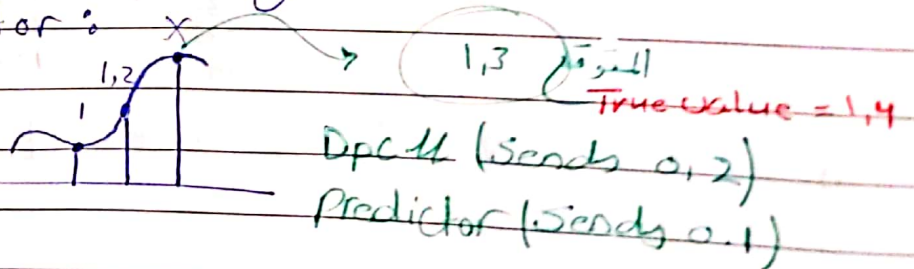 or :
X
1,2
1
1,3 المتوقع
True value = 1,4
Dpcm (Sends 0,2)
Predictor (Sends 0.1)